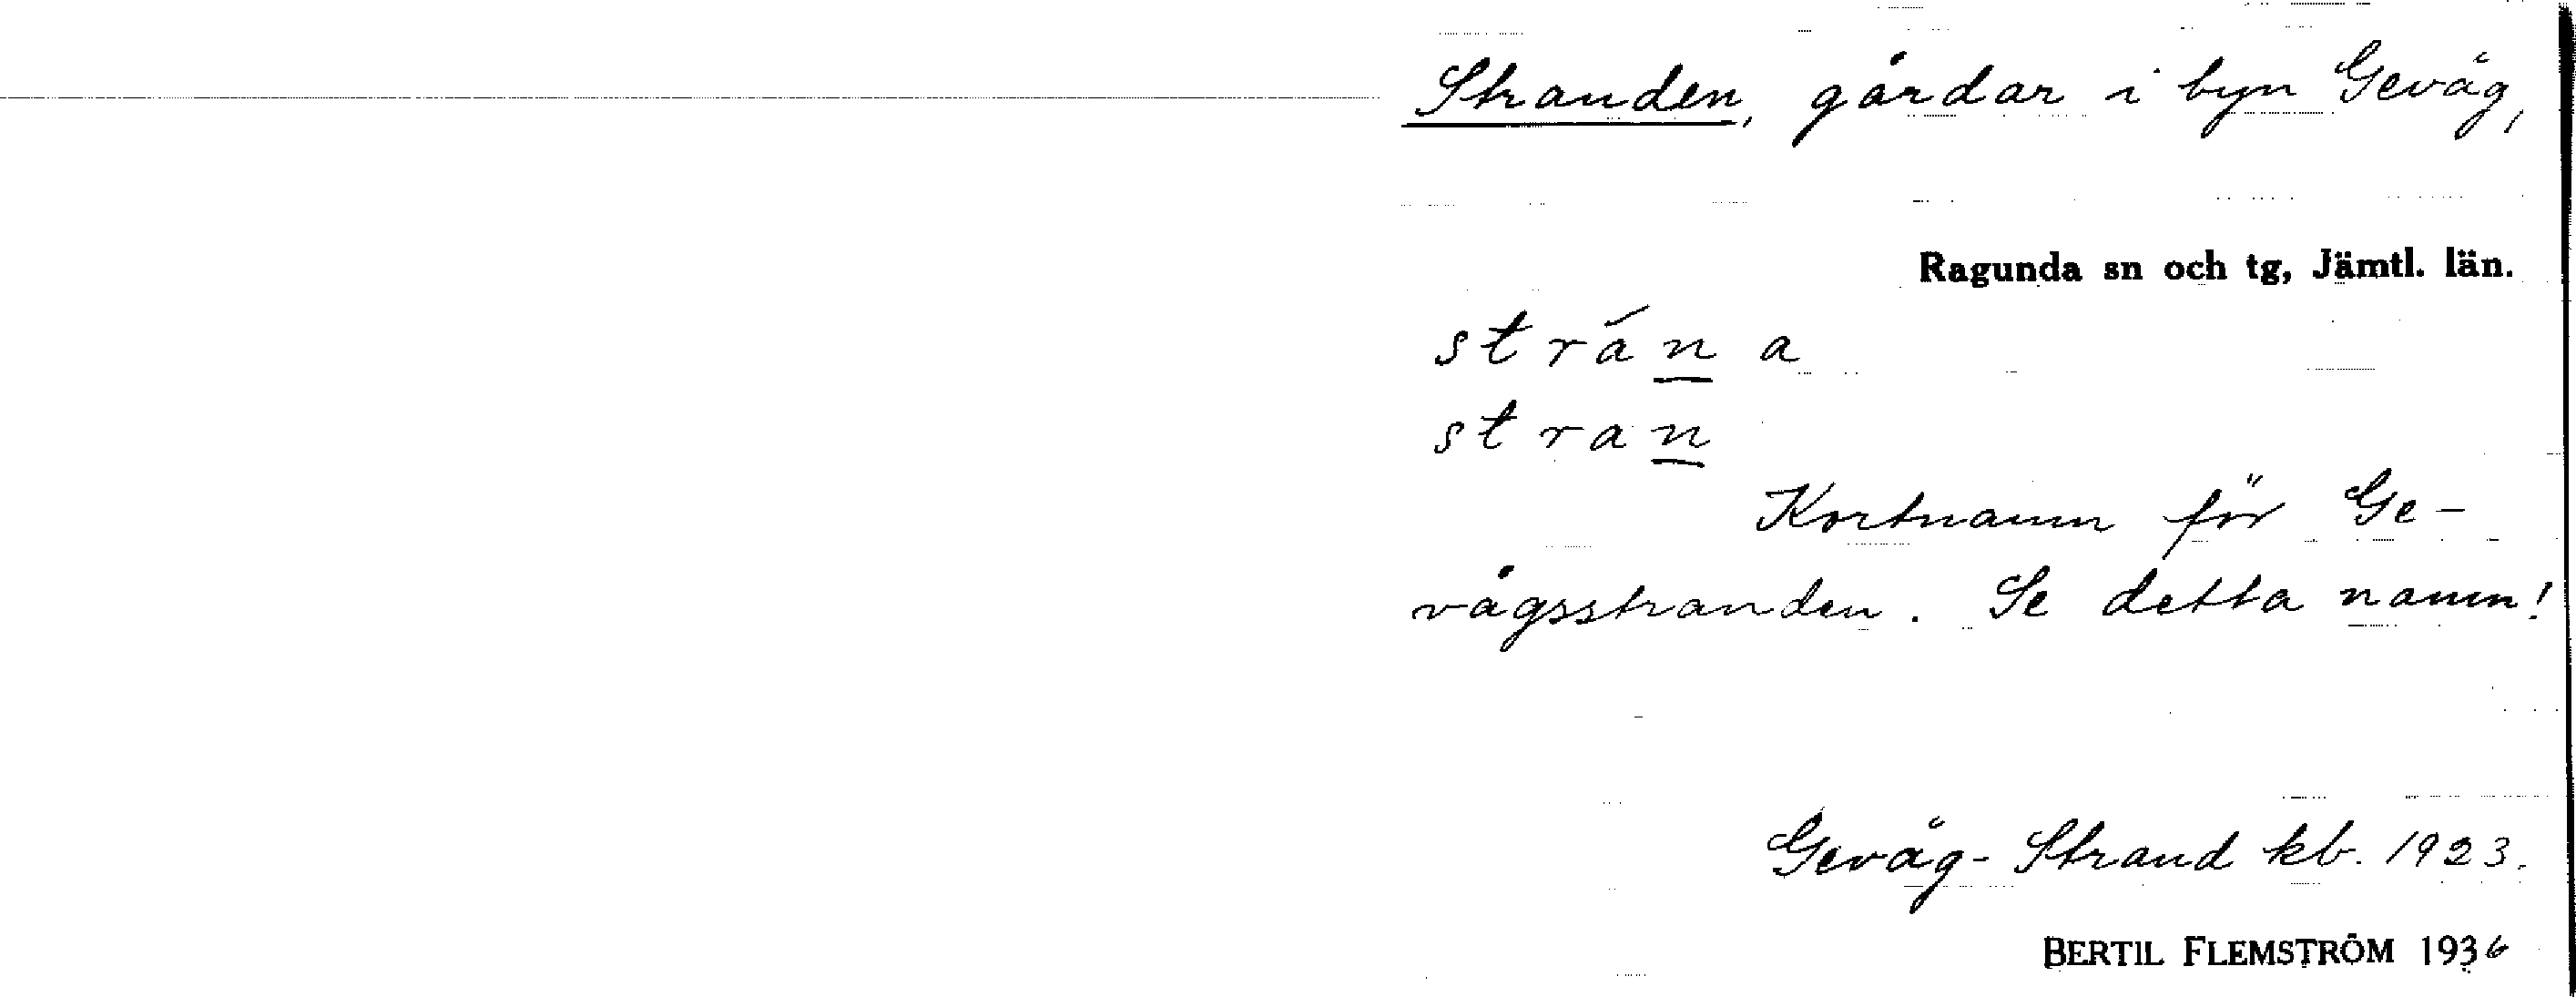 Stranden, gårdar i byn Gevåg,
Ragunda sn och tg, Jämtl. län.
strána
stran
Kortnamn för Ge-
vågsstranden. Se detta namn!
Gevåg-Strand kb. 1923.
BERTIL FLEMSTRÖM 1936